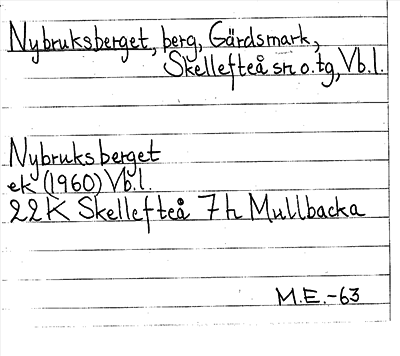 Nybruksberget, berg, Gärdsmark,
Skellefteå sn o. tg, Vb.l.
Nybruksberget
ek (1960) Vb.l.
22K Skellefteå 7h Mullbacka
M.E.-63